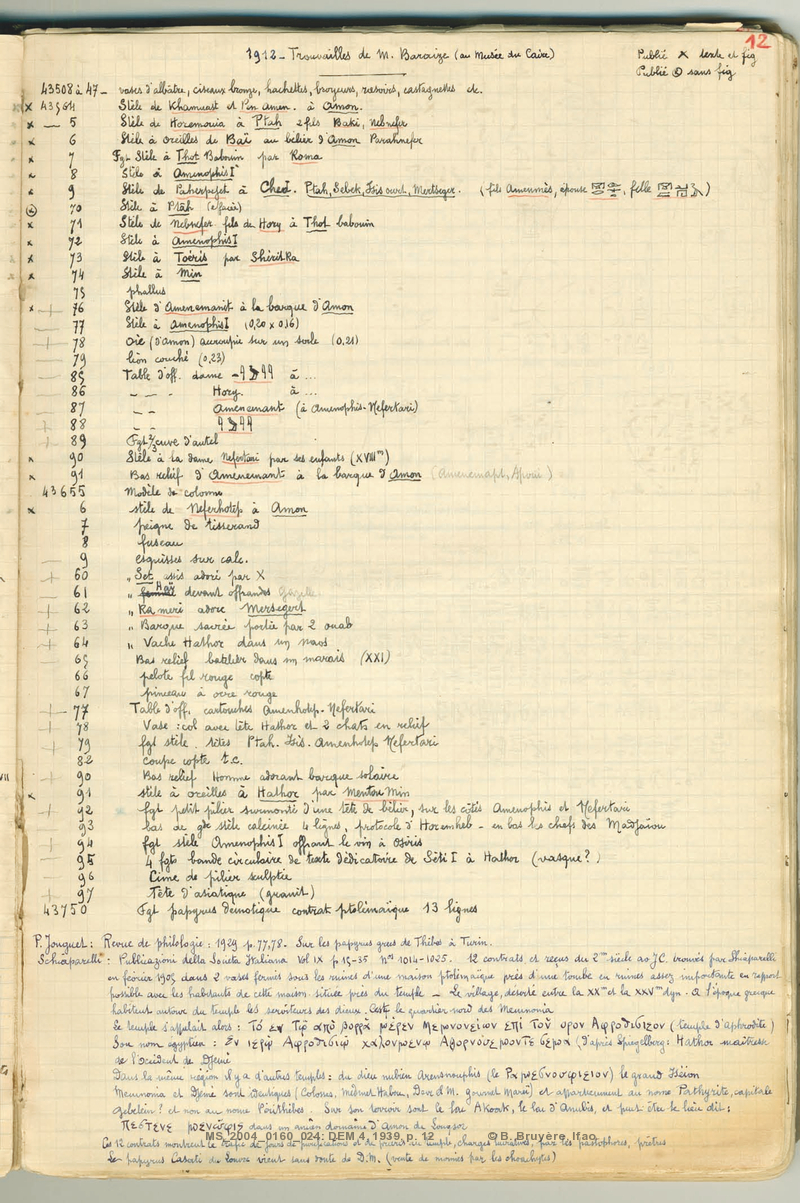 12
1912 - Trouvailles de M. Baraize (au Musée du Caire)
Publié x texte et fig
Publié ⊙ sans fig
43508 à 47 - vases d'albâtre, ciseaux bronze, hachettes, broyeurs, rasoirs, castagnettes etc.
x 43564 Stèle de Khamuast et Pen amen. à Amon.
x — 5 Stèle de Horemouia à Ptah 2 fils Baki, Nebnefer
x 6 Stèle à oreilles de Baï au bélier d'Amon Parahnefer
x 7 Fgt Stèle à Thot Babouin par Roma
x 8 Stèle à Amenophis I
x 9 Stèle de Paherpejet à Ched. Ptah, Sebek, Isis ouert, Mertseger. (fils Amenmès, épouse , fille )
⊙ 70 Stèle à Ptah
x 71 Stèle de Nebnefer fils de Hory à Thot babouin
x 72 Stèle à Amenophis I
x 73 Stèle à Toëris par SheritRa
x 74 Stèle à Min
75 phallus
x 76 Stèle d'Amenemanit à la barque d'Amon
77 Stèle à Amenophis I (0,20 x 0,16)
78 oie (d'Amon) accroupie sur un socle (0,21)
79 lion couché (0,23)
85 Table d'off. dame à ...
86 _ _ _ Hory. à ...
87 _ _ Amenemant (à Amenophis-Nefertari)
88 _ _
89 Fgt cuve d'autel
x 90 Stèle à la dame Nefertari par ses enfants (XVIII)
x 91 Bas relief d'Amenemant à la barque d'Amon
43655 Modèle de colonne
x 6 stèle de Neferhotep à Amon
7 peigne de tisserand
8 fuseau
9 esquisses sur calc.
60 " Set assis adoré par X
61 " Haÿ devant offrandes Gazelle
62 " Ra meri adore Mersegert
63 " Barque sacrée portée par 2 ouab
64 " Vache Hathor dans un naos
65 Bas relief batelier dans un marais (XXI)
66 pelote fil rouge copte
67 pinceau à ocre rouge
77 Table d'off. cartouches Amenhotep-Nefertari
78 Vase : col avec tête Hathor et 2 chats en relief
79 fgt stèle. têtes Ptah. Isis. Amenhotep Nefertari
82 coupe copte t.c.
90 Bas relief Homme adorant barque solaire
x 91 stèle à oreilles à Hathor par MentouMin
92 fgt petit pilier surmonté d'une tête de bélier, sur les côtés Amenophis et Nefertari
93 bas de gde stèle calcinée 4 lignes, protocole d'Horemheb - en bas les chefs des Madjaiou
94 fgt stèle Amenophis I offrant le vin à Osiris
95 4 fgts bande circulaire de texte dédicatoire de Séti I à Hathor (vasque ?)
96 Cime de pilier sculptée
97 Tête d'asiatique (granit)
43750 Fgt papyrus démotique contrat ptolémaïque 13 lignes
P. Jouguet : Revue de philologie : 1929 p. 77,78. Sur les papyrus grecs de Thèbes à Turin.
Schiaparelli : Publicazioni della Societa Italiana Vol IX p. 15-35 Nos 1014-1025. 12 contrats et reçus du 2me siècle av. J.C. trouvés par Shiaparelli
en février 1905 dans 2 vases fermés sous les ruines d'une maison ptolémaïque près d'une tombe en ruines assez importante en rapport
possible avec les habitants de cette maison située près du temple - Le village, déserté entre la XXme et la XXVme dyn. à l'époque grecque
habitent autour du temple les serviteurs des dieux. C'est le quartier nord des Memnonia
Le temple s'appelait alors : (temple d'Aphrodite)
Son nom égyptien : (D'après Spiegelberg : Hathor maîtresse
de l'Occident de Djemi
Dans la même région il y a d'autres temples : du dieu nubien Arensnouphis le grand Iseion
Memnonia et Djemé sont identiques (Colosses, Medinet Habou, Deir el M. Gournet Mareï) et appartiennent au nome Pathyrite, capitale
Gebelein ! et non au nome Périthèbes. Sur son terroir sont le lac Akoak, le lac d'Anubis, et peut être le lieu dit :
dans un ancien domaine d'Amon de Louqsor
Ces 12 contrats montrent le trafic de jours de purifications et du service du temple, charges lucratives, par les pastophores, prêtres
Le papyrus Casati du Louvre vient sans doute de D.M. (vente de momies par les choachytes)
MS_2004_0160_024: DEM 4, 1939, p. 12 ©B. Bruyère, Ifao
VII